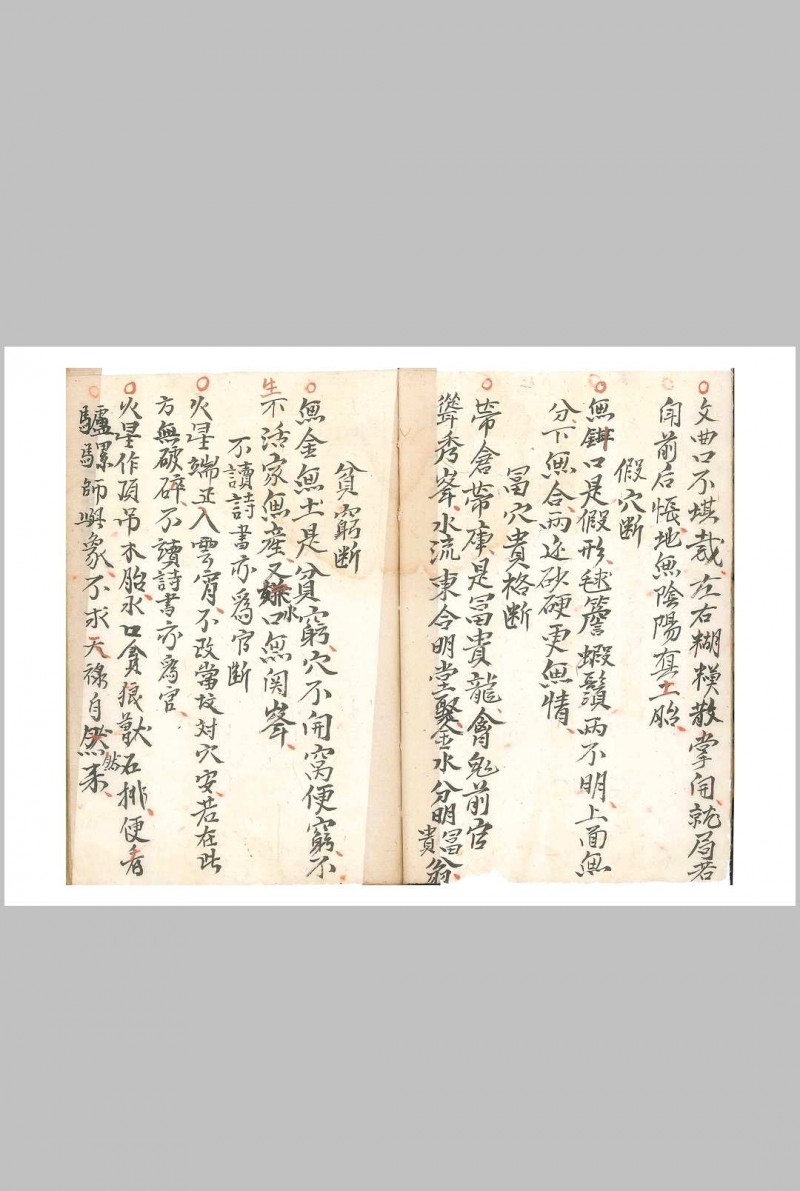 文曲口不堪裁左右糊糢散掌開就局若
開前后悵地無陰陽真土胎
假穴斷
無鉗口是假形毬簷蝦鬚兩不明上面無
分下無合兩边砂硬更無情
冨穴貴格斷
帶倉帶庫是冨貴龍禽鬼前官
聳秀峯水流東合明堂聚金水分明冨貴翁
貧窮斷
無金無土是貧窮穴不開窝便窮不
生不活家無産又嫌水口無関峯
不讀詩書亦爲官斷
火星端正入雲霄不政當坟対穴安若在此
方無破碎不讀詩書亦爲官
火星作頂吊木胎水口貪狼獸石排便看
驢騾師與象不求天禄自然来
然